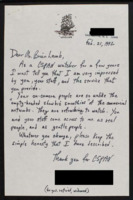 Feb. 21, 1992
Dear Mr. Brian Lamb,
As a CSPAN watcher for a few years
I must tell you that I am very impressed
by you, your staff, and the service that
you provide.
Your on-camera people are so unlike the
empty-headed talking at the commercial
networks. They are refreshing to watch. You
and your staff come across to me as real
people, and as gentle people.
Whatever you change, please keep the
simple honesty that I have described.
Thank you for CSPAN